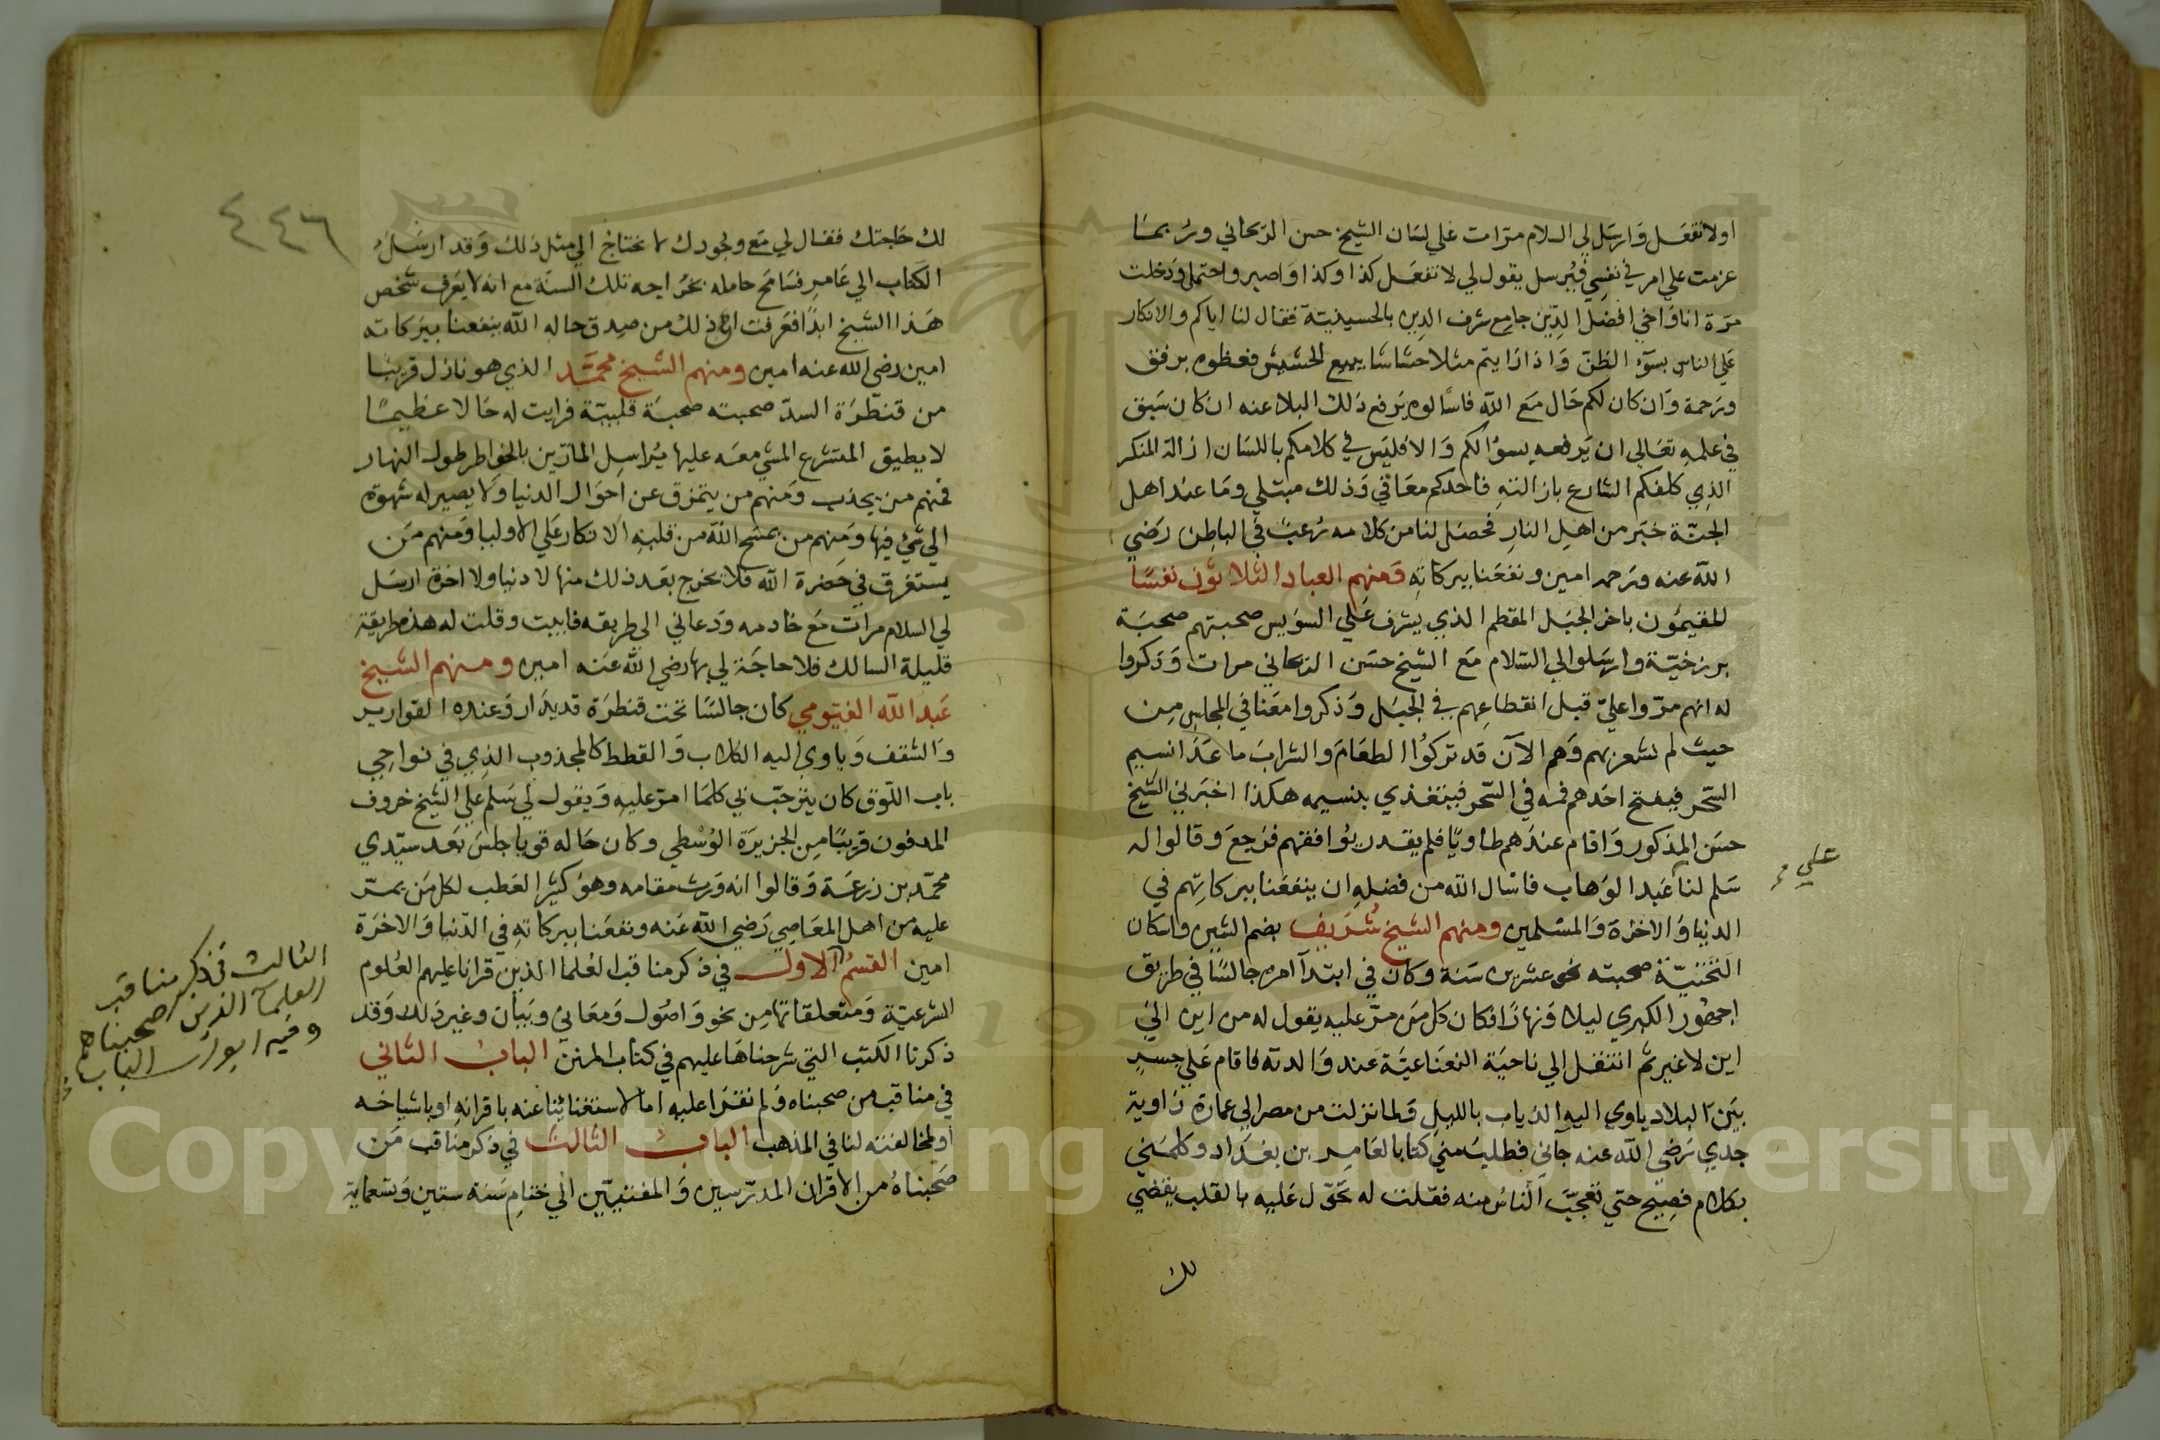 او لا تفعل وارسل لي السلام مرات علي لسان الشيخ حسن الريحاني وربما
عزمت علي امر في نفسي فيرسل يقول لي لا تفعل كذا وكذا واصبر واحتمل ودخلت
مرة انا واخي افضل الدين جامع شرف الدين بالحسينية فقال لنا اياكم والانكار
علي الناس بسوء الظن واذا رايتم مثلا حشاشا يبيع الحشيش فعظوه برفق
ورحمة وان كان لكم حال مع الله فاسالوه يرفع ذلك البلا عنه ان كان سبق
في علمه تعالي ان يرفعه بسوالكم والا فليس في كلامكم باللسان ازالة المنكر
الذي كلفكم الشارع بازالته فاحدكم معافي وذلك مبتلي وما عند اهل
الجنة خبر من اهل النار فحصل لنا من كلامه رعب في الباطن رضي
الله عنه ورحمه امين ونفعنا ببركاته ومنهم العباد الثلاثون نفسا
المقيمون باخر الجبل المقطم الذي يشرف علي السويس صحبتهم صحبة
برزخية وارسلوا لي السلام مع الشيخ حسن الريحاني مرات وذكروا
له انهم مروا علي قبل انقطاعهم في الجبل وذكروا معنا في المجلس من
حيث لم نشعر بهم وهم الآن قد تركوا الطعام والشراب ما عدا نسيم
السحر فيفتح احدهم فمه في السحر فيتغذي بنسيمه هكذا اخبرني الشيخ
حسن المذكور واقام عندهم طاويا فلم يقدر يوافقهم فرجع وقالوا له
سلم لنا عبد الوهاب فاسال الله من فضله ان ينفعنا ببركاتهم في
علي
الدنيا والاخرة والمسلمين ومنهم الشيخ شريف بضم الشين واسكان
التحتية صحبته نحو عشرين سنة وكان في ابتدآ امره جالسا في طريق
الكبري ليلا ونهارا فكان كل من مر عليه يقول له من اين الي
اين لا غير ثم انتقل الي ناحية النعناعية عند والدته فاقام علي جسر
بين البلاد ياوي اليه الذياب بالليل ولما نزلت من مصر الي عمارة زاوية
جدي رضي الله عنه جآني فطلب مني كتابا لعامر بن بغداد وكلمني
بكلام فصيح حتي تعجب الناس منه فقلت له تحول عليه بالقلب يقضي
لك
٤٤٦
لك حاجتك فقال لي مع وجودك لا نحتاج الي مثل ذلك وقد ارسل
الكتاب الي عامر فسامح حامله بخراجه تلك السنة مع انه لا يعرف شخص
هذا الشيخ ابدا فعرفت ان ذلك من صدق حاله الله ينفعنا ببركاته
امين رضي الله عنه امين ومنهم الشيخ محمد الذي هو نازل قريبا
من قنطرة السد صحبته صحبة قلبية فرايت له حالا عظيما
لا يطيق المتشرع المشي معه عليها يراسل المارين بالخواطر طول النهار
فمنهم من يجذب ومنهم من يتمزق عن احوال الدنيا ولا يصير له شهوة
الي شي فيها ومنهم من يمسح الله من قلبه الانكار علي الاوليا ومنهم من
يستغرق في حضرة الله فلا يخرج بعد ذلك منها لا دنيا ولا اخرة ارسل
لي السلام مرات مع خادمه ودعاني الي طريقه فابيت وقلت له هذه طريقة
قليلة السالك فلا حاجة لي بها رضي الله عنه امين ومنهم الشيخ
عبد الله الفيومي كان جالسا تحت قنطرة قديدار وعنده القوارير
والشقف وياوي اليه الكلاب والقطط كالمجذوب الذي في نواحي
باب اللوق كان يترحب بي كلما امر عليه ويقول لي سلم علي الشيخ خروف
المدفون قريبا من الجزيرة الوسطي وكان حاله قويا جلس بعد سيدي
محمد بن زرعة وقالوا انه ورث مقامه وهو كثير العطب لكل من يمر
عليه من اهل المعاصي رضي الله عنه ونفعنا ببركاته في الدنيا والاخرة
امين القسم الاول في ذكر مناقب العلما الذين قرانا عليهم العلوم
الشرعية ومتعلقاتها من نحو واصول ومعاني وبيان وغير ذلك وقد
ذكرنا الكتب التي شرحناها عليهم في كتاب المنن الباب الثاني
في مناقب من صحبناه ولم نقرا عليه اما لاستغنائنا عنه باقرانه او باشياخه
او لمخالفته لنا في المذهب الباب الثالث في ذكر مناقب من
صحبناه من الاقران المدرسين والمفتيين الي ختام سنة ستين وتسعماية
الثالث في ذكر مناقب
العلمآ الذين صحبناهم
وفيه ابواب الباب